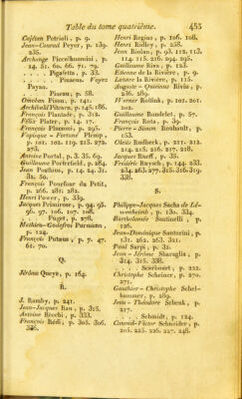 Table du tome quatrième. 455
Cajétan Petrioli, p. 9.
Jean-Conrad Peyer, p. 139.
235.
Archange Piccolhuomini, p.
14. 51. 60. 66. 71. 79.
. . . . Pigafetta, p. 33.
. . . . Pinæus. Voyez
Payan.
. . . . Pisson, p. 58.
François Plantade, p. 312.
Félix Plater, p. 14. 17.
François Plazzoni, p. 295.
Fopique-Fortuné Plemp,
p. 101. 102. 119. 215. 272.
278.
Antoine Portal, p. 3. 35. 69.
Guillaume Porterfield, p. 284.
Jean Posthius, p. 14. 24. 31.
81. 89.
François Pourfour du Petit,
p. 266. 281. 282.
Henri Power, p. 339.
Jacques Primirose, p. 94. 95.
96. 97. 106. 107. 108.
. . . . Puget, p. 278.
Mathieu-Godefroi Purmann,
p. 124.
François Puteus, p. 7. 47.
61. 70.
Q.
Jérôme Queye, p. 164.
R.
J. Ramby, p. 241.
Jean-Jacques Rau, p. 315.
Antoine Recchi, p. 333.
François Rédi, p. 305. 306.
336.
Henri Regius, p. 106. 108.
Henri Ridley, p. 258.
Jean Riolan, p. 98. 112. 113.
114. 115. 216. 294. 295.
Guillaume Riva, p. 125.
Etienne de la Rivière, p. 9.
Lazare la Rivière, p. 115.
Auguste-Quirinus Rivin, p.
236. 289.
Werner Rolfink, p. 101. 201.
202.
Guillaume Rondelet, p. 57.
François Rota, p. 39.
Pierre-Simon Rouhault, p.
153.
Olaüs Rudbeck, p. 211. 212.
214. 215. 216. 217. 218.
Jacques Rueff, p. 35.
Frédéric Ruysch, p. 144. 233.
234. 263. 277. 315. 316. 319.
338.
S.
Philippe-Jacques Sachs de Lé-
wenheimb, p. 130. 334.
Barthelemie Santinelli, p.
126.
Jean-Dominique Santorini, p.
131. 262. 263. 321.
Paul Sarpi, p. 31.
Jean-Jérôme Sbaraglia, p.
314. 315. 338.
Christophe Scheiner, p. 270.
271.
Gauthier-Christophe Schel-
hammer, p. 289.
Jean-Théodore Schenk, p.
217.
. . . . Schmidt, p. 124.
Conrad-Victor Schneider, p.
205. 225. 226. 227. 248.